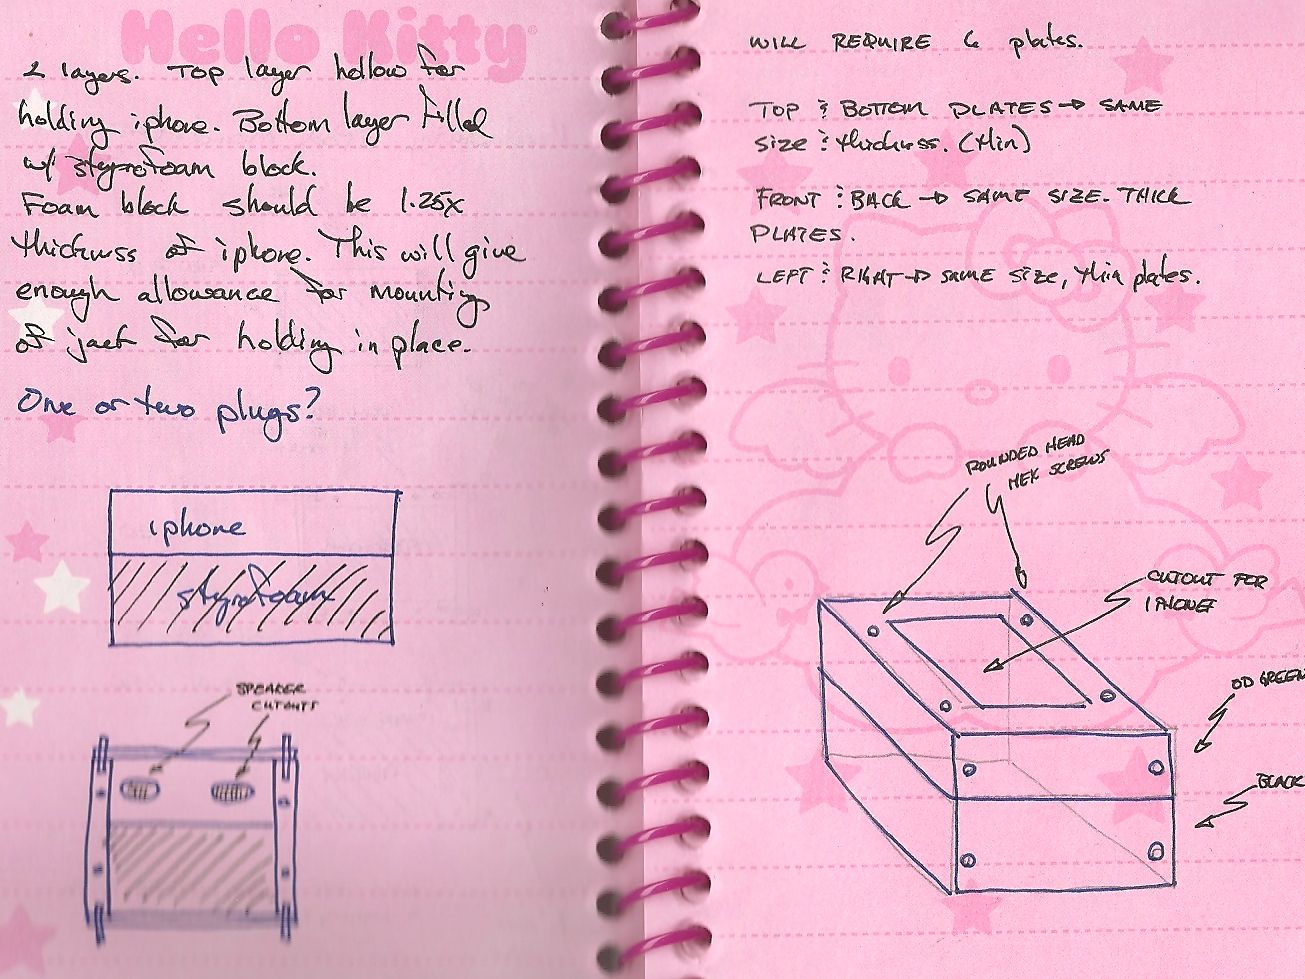 Hello Kitty
2 layers. Top layer hollow for
holding iphone. Bottom layer filled
w/ styrofoam block.
Foam block should be 1.25x
thickness of iphone. This will give
enough allowance for mounting
of jack for holding in place.
One or two plugs?
iphone
styrofoam
SPEAKER
CUTOUTS
WILL REQUIRE 6 plates.
TOP & BOTTOM PLATES → SAME
SIZE & thickness. (thin)
FRONT & BACK → SAME SIZE. THICK
PLATES.
LEFT & RIGHT → SAME SIZE, thin plates.
ROUNDED HEAD
HEX SCREWS
CUTOUT FOR
IPHONE
OD GREEN
BLACK